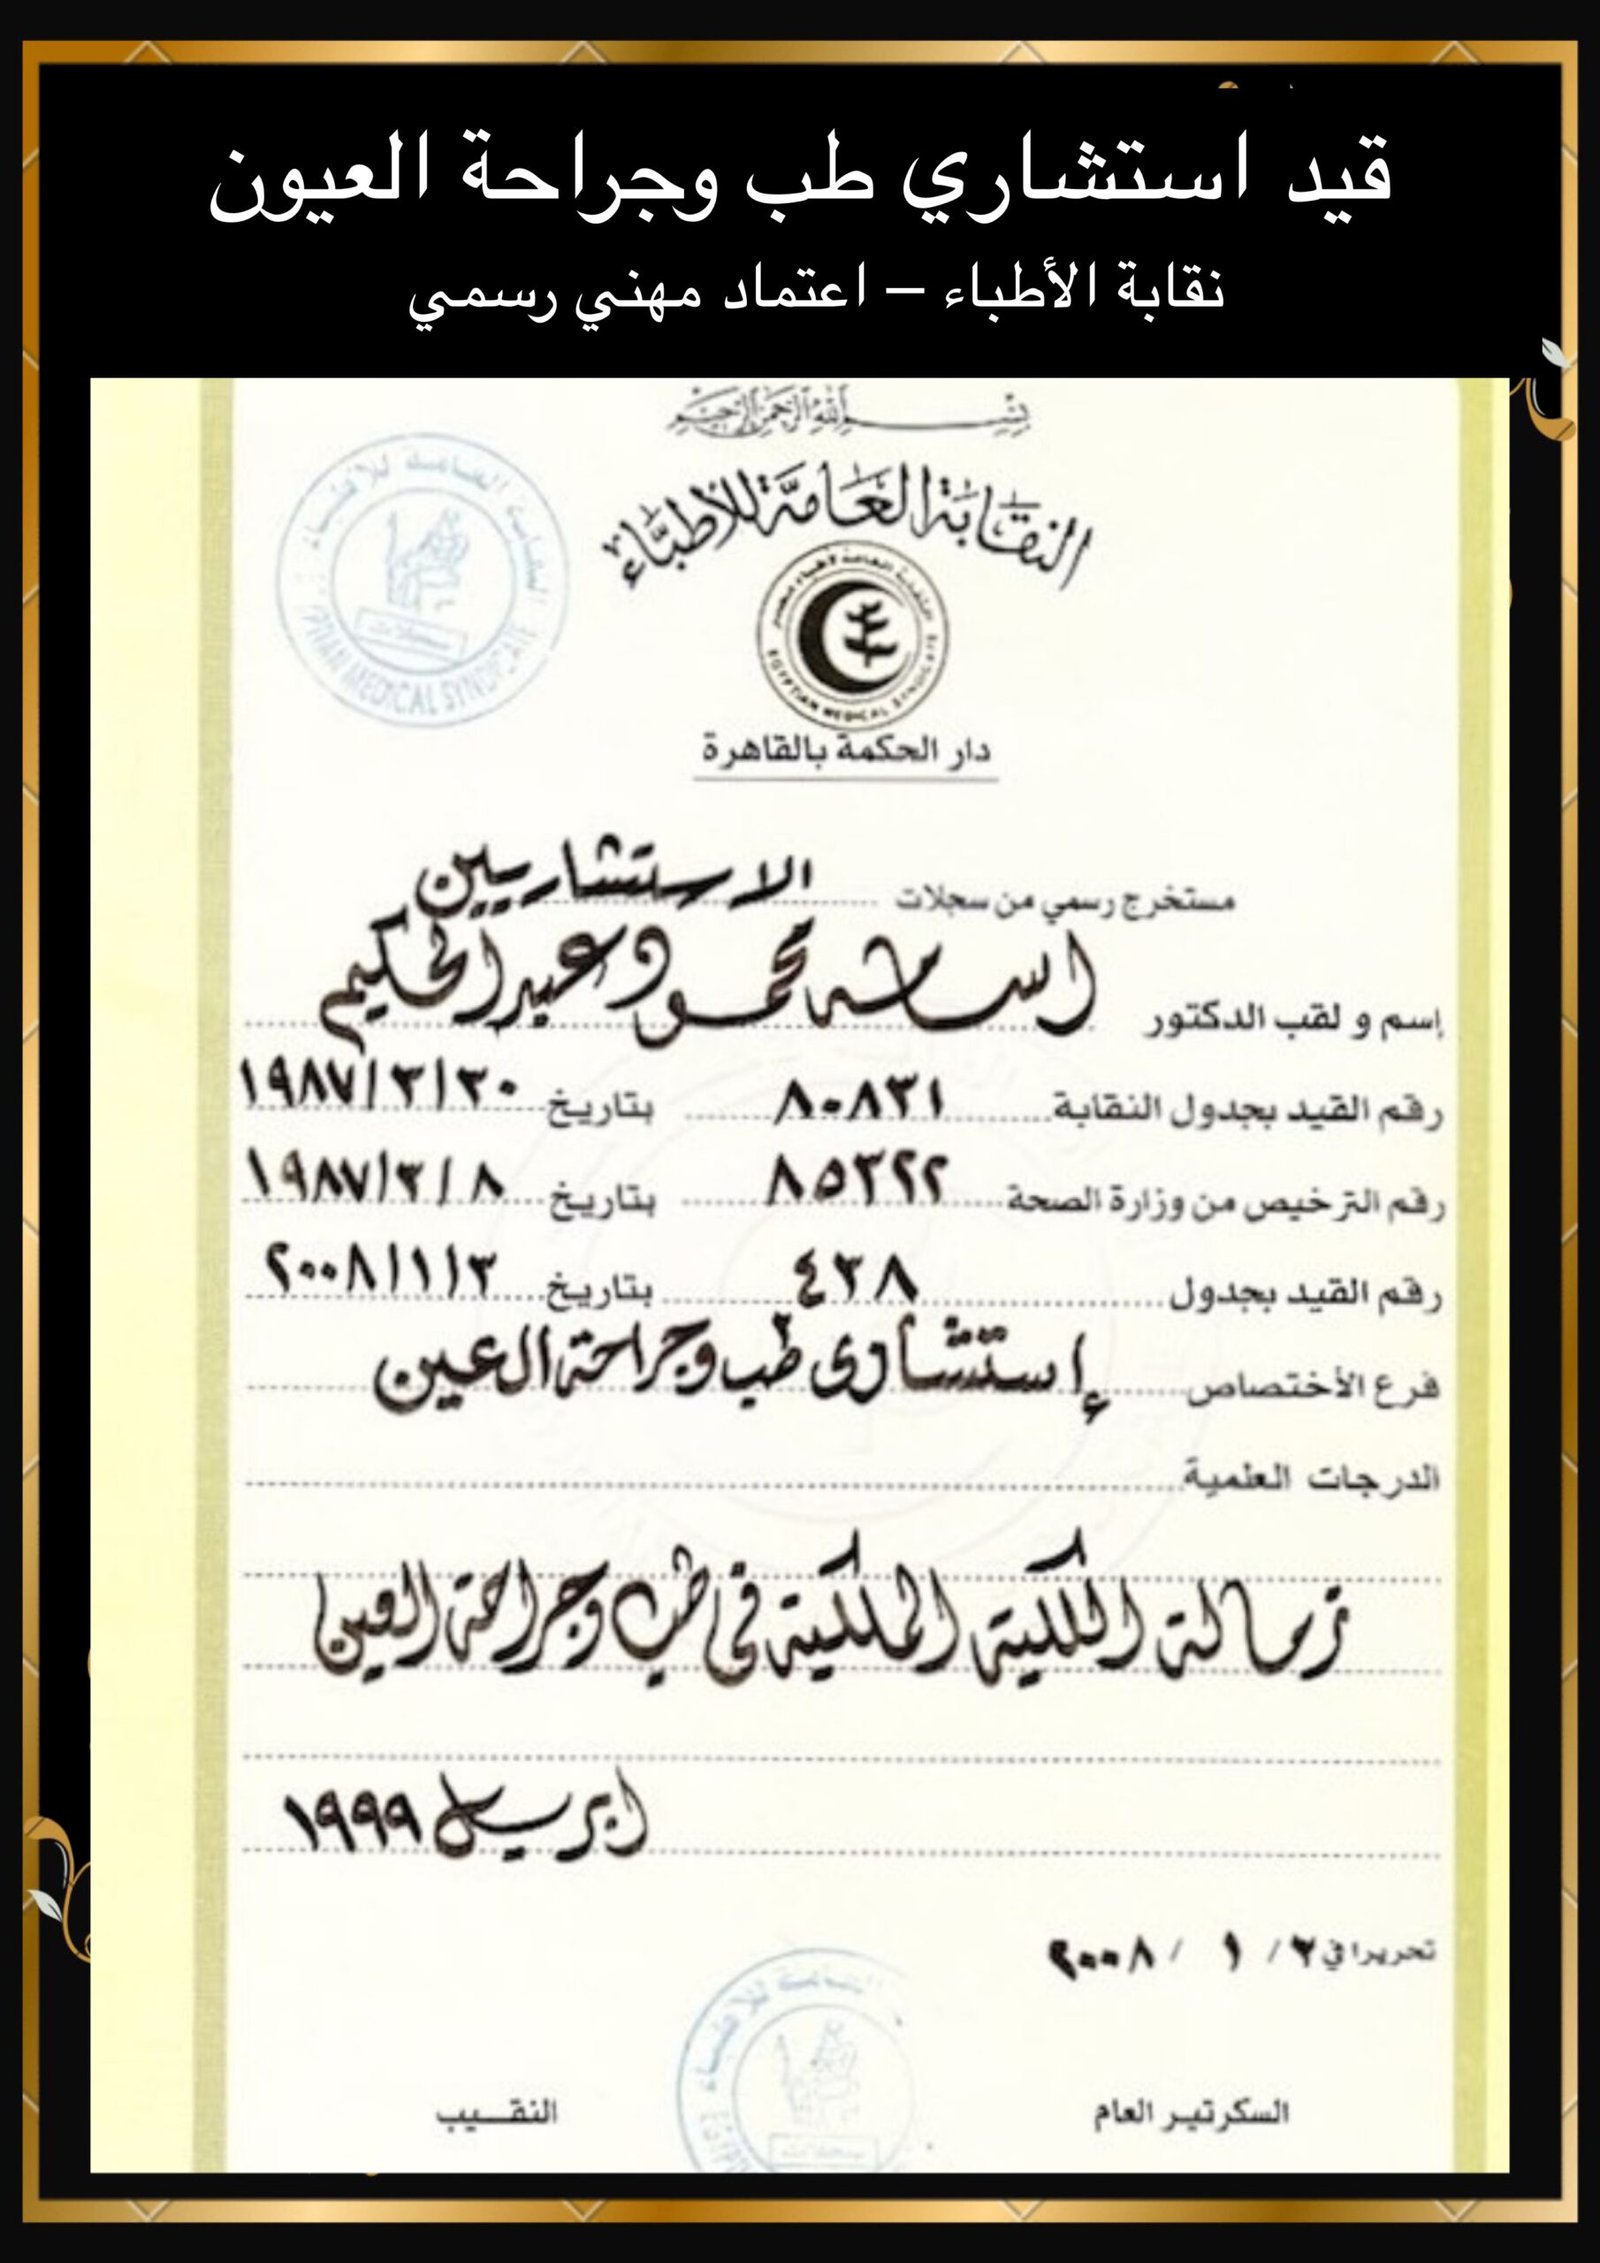 قيد استشاري طب وجراحة العيون
نقابة الأطباء – اعتماد مهني رسمي
بسم الله الرحمن الرحيم
النقابة العامة للأطباء
النقابة العامة للأطباء
EGYPTIAN MEDICAL SYNDICATE
MEDICAL SYNDICATE
سجلات
دار الحكمة بالقاهرة
مستخرج رسمي من سجلات الاستشاريين
إسم و لقب الدكتور اسامه محمود عبد الحكيم
رقم القيد بجدول النقابة ٨٠٨٣١ بتاريخ ١٩٨٧/٣/٣٠
رقم الترخيص من وزارة الصحة ٨٥٣٢٢ بتاريخ ١٩٨٧/٣/٨
رقم القيد بجدول ٤٣٨ بتاريخ ٢٠٠٨/١/٣
فرع الأختصاص إستشارى طب وجراحة العين
الدرجات العلمية
زمالة الكلية الملكية فى طب وجراحة العين
ابريل ١٩٩٩
تحريرا في ٢ / ١ / ٢٠٠٨
العامة للأطباء
السكرتير العام
النقيب